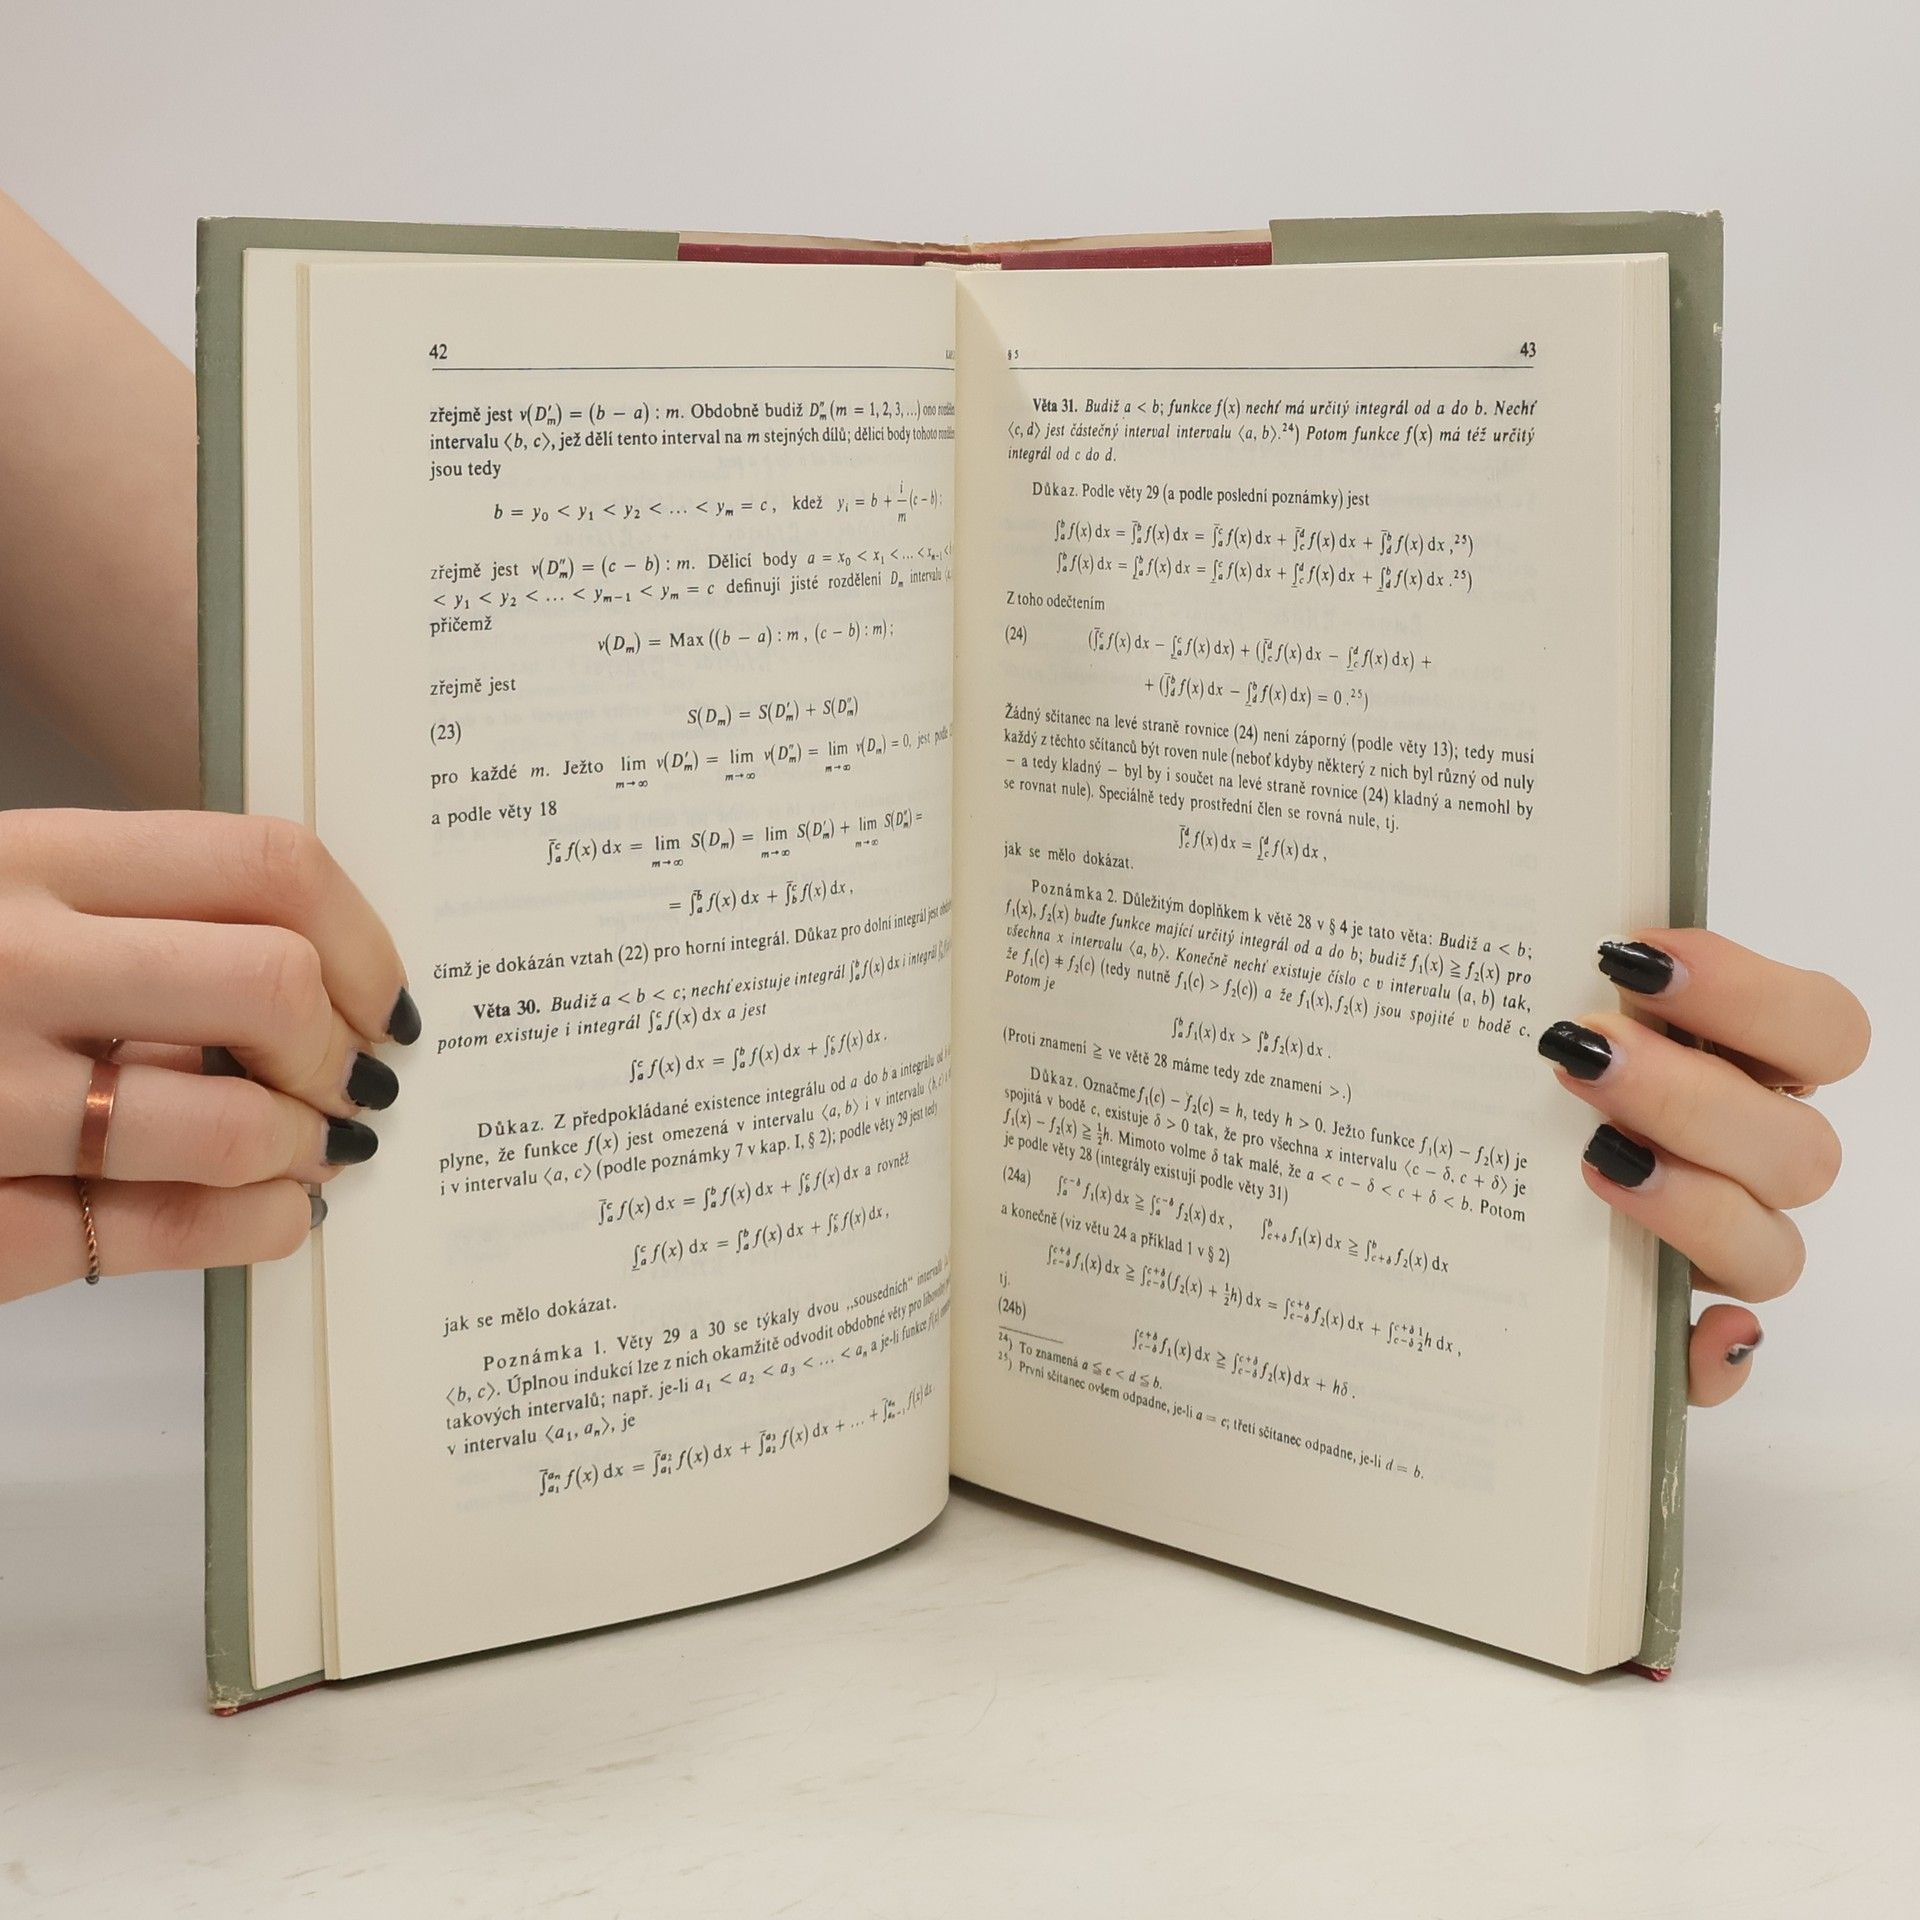 42
zřejmě jest ν(D′ₘ) = (b − a) : m. Obdobně budiž D″ₘ (m = 1, 2, 3, ...) ono
intervalu ⟨b, c⟩, jež dělí tento interval na m stejných dílů; dělicí body tohoto
jsou tedy
b = y₀ < y₁ < y₂ < ... < yₘ = c , kdež yᵢ = b + i/m (c − b) ;
zřejmě jest ν(D″ₘ) = (c − b) : m. Dělicí body a = x₀ < x₁ < ... < xₘ₋₁ <
< y₁ < y₂ < ... < yₘ₋₁ < yₘ = c definují jisté rozdělení Dₘ intervalu
přičemž
ν(Dₘ) = Max ((b − a) : m , (c − b) : m) ;
zřejmě jest
(23) S(Dₘ) = S(D′ₘ) + S(D″ₘ)
pro každé m. Ježto lim_{m→∞} ν(D′ₘ) = lim_{m→∞} ν(D″ₘ) = lim_{m→∞} ν(Dₘ) = 0, jest podle
a podle věty 18
∫̄ₐᶜ f(x) dx = lim_{m→∞} S(Dₘ) = lim_{m→∞} S(D′ₘ) + lim_{m→∞} S(D″ₘ) =
= ∫̄ₐᵇ f(x) dx + ∫̄_b^c f(x) dx ,
čímž je dokázán vztah (22) pro horní integrál. Důkaz pro dolní integrál jest
Věta 30. Budiž a < b < c; nechť existuje integrál ∫ₐᵇ f(x) dx i integrál
potom existuje i integrál ∫ₐᶜ f(x) dx a jest
∫ₐᶜ f(x) dx = ∫ₐᵇ f(x) dx + ∫_b^c f(x) dx .
Důkaz. Z předpokládané existence integrálu od a do b a integrálu od
plyne, že funkce f(x) jest omezená v intervalu ⟨a, b⟩ i v intervalu ⟨b, c⟩
i v intervalu ⟨a, c⟩ (podle poznámky 7 v kap. I, § 2); podle věty 29 jest tedy
∫̄ₐᶜ f(x) dx = ∫ₐᵇ f(x) dx + ∫_b^c f(x) dx a rovněž
∫̲ₐᶜ f(x) dx = ∫ₐᵇ f(x) dx + ∫_b^c f(x) dx ,
jak se mělo dokázat.
Poznámka 1. Věty 29 a 30 se týkaly dvou „sousedních" intervalů
⟨b, c⟩. Úplnou indukcí lze z nich okamžitě odvodit obdobné věty pro
takových intervalů; např. je-li a₁ < a₂ < a₃ < ... < aₙ a je-li funkce f(x)
v intervalu ⟨a₁, aₙ⟩, je
∫̄_{a₁}^{aₙ} f(x) dx = ∫̄_{a₁}^{a₂} f(x) dx + ∫̄_{a₂}^{a₃} f(x) dx + ... + ∫̄_{aₙ₋₁}^{aₙ} f(x) dx
§ 5 43
Věta 31. Budiž a < b; funkce f(x) nechť má určitý integrál od a do b. Nechť
⟨c, d⟩ jest částečný interval intervalu ⟨a, b⟩.²⁴) Potom funkce f(x) má též určitý
integrál od c do d.
Důkaz. Podle věty 29 (a podle poslední poznámky) jest
∫ₐᵇ f(x) dx = ∫̄ₐᵇ f(x) dx = ∫̄ₐᶜ f(x) dx + ∫̄_c^d f(x) dx + ∫̄_d^b f(x) dx ,²⁵)
∫ₐᵇ f(x) dx = ∫̲ₐᵇ f(x) dx = ∫̲ₐᶜ f(x) dx + ∫̲_c^d f(x) dx + ∫̲_d^b f(x) dx .²⁵)
Z toho odečtením
(24) (∫̄ₐᶜ f(x) dx − ∫̲ₐᶜ f(x) dx) + (∫̄_c^d f(x) dx − ∫̲_c^d f(x) dx) +
+ (∫̄_d^b f(x) dx − ∫̲_d^b f(x) dx) = 0 .²⁵)
Žádný sčítanec na levé straně rovnice (24) není záporný (podle věty 13); tedy musí
každý z těchto sčítanců být roven nule (neboť kdyby některý z nich byl různý od nuly
– a tedy kladný – byl by i součet na levé straně rovnice (24) kladný a nemohl by
se rovnat nule). Speciálně tedy prostřední člen se rovná nule, tj.
∫̄_c^d f(x) dx = ∫̲_c^d f(x) dx ,
jak se mělo dokázat.
Poznámka 2. Důležitým doplňkem k větě 28 v § 4 je tato věta: Budiž a < b;
f₁(x), f₂(x) buďte funkce mající určitý integrál od a do b; budiž f₁(x) ≧ f₂(x) pro
všechna x intervalu ⟨a, b⟩. Konečně nechť existuje číslo c v intervalu (a, b) tak,
že f₁(c) ≠ f₂(c) (tedy nutně f₁(c) > f₂(c)) a že f₁(x), f₂(x) jsou spojité v bodě c.
Potom je
∫ₐᵇ f₁(x) dx > ∫ₐᵇ f₂(x) dx .
(Proti znamení ≧ ve větě 28 máme tedy zde znamení >.)
Důkaz. Označme f₁(c) − f₂(c) = h, tedy h > 0. Ježto funkce f₁(x) − f₂(x) je
spojitá v bodě c, existuje δ > 0 tak, že pro všechna x intervalu ⟨c − δ, c + δ⟩ je
f₁(x) − f₂(x) ≧ ½h. Mimoto volme δ tak malé, že a < c − δ < c + δ < b. Potom
je podle věty 28 (integrály existují podle věty 31)
(24a) ∫ₐ^{c−δ} f₁(x) dx ≧ ∫ₐ^{c−δ} f₂(x) dx , ∫_{c+δ}^b f₁(x) dx ≧ ∫_{c+δ}^b f₂(x) dx
a konečně (viz větu 24 a příklad 1 v § 2)
∫_{c−δ}^{c+δ} f₁(x) dx ≧ ∫_{c−δ}^{c+δ} (f₂(x) + ½h) dx = ∫_{c−δ}^{c+δ} f₂(x) dx + ∫_{c−δ}^{c+δ} ½h dx ,
tj.
(24b) ∫_{c−δ}^{c+δ} f₁(x) dx ≧ ∫_{c−δ}^{c+δ} f₂(x) dx + hδ .
²⁴) To znamená a ≦ c < d ≦ b.
²⁵) První sčítanec ovšem odpadne, je-li a = c; třetí sčítanec odpadne, je-li d = b.